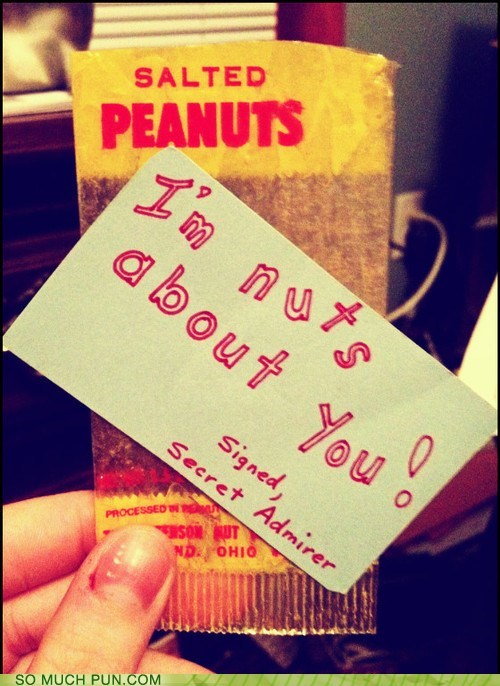 SALTED
PEANUTS
I'm nuts
about you!
Signed,
Secret Admirer
PROCESSED IN
NUT
OHIO
SO MUCH PUN.COM